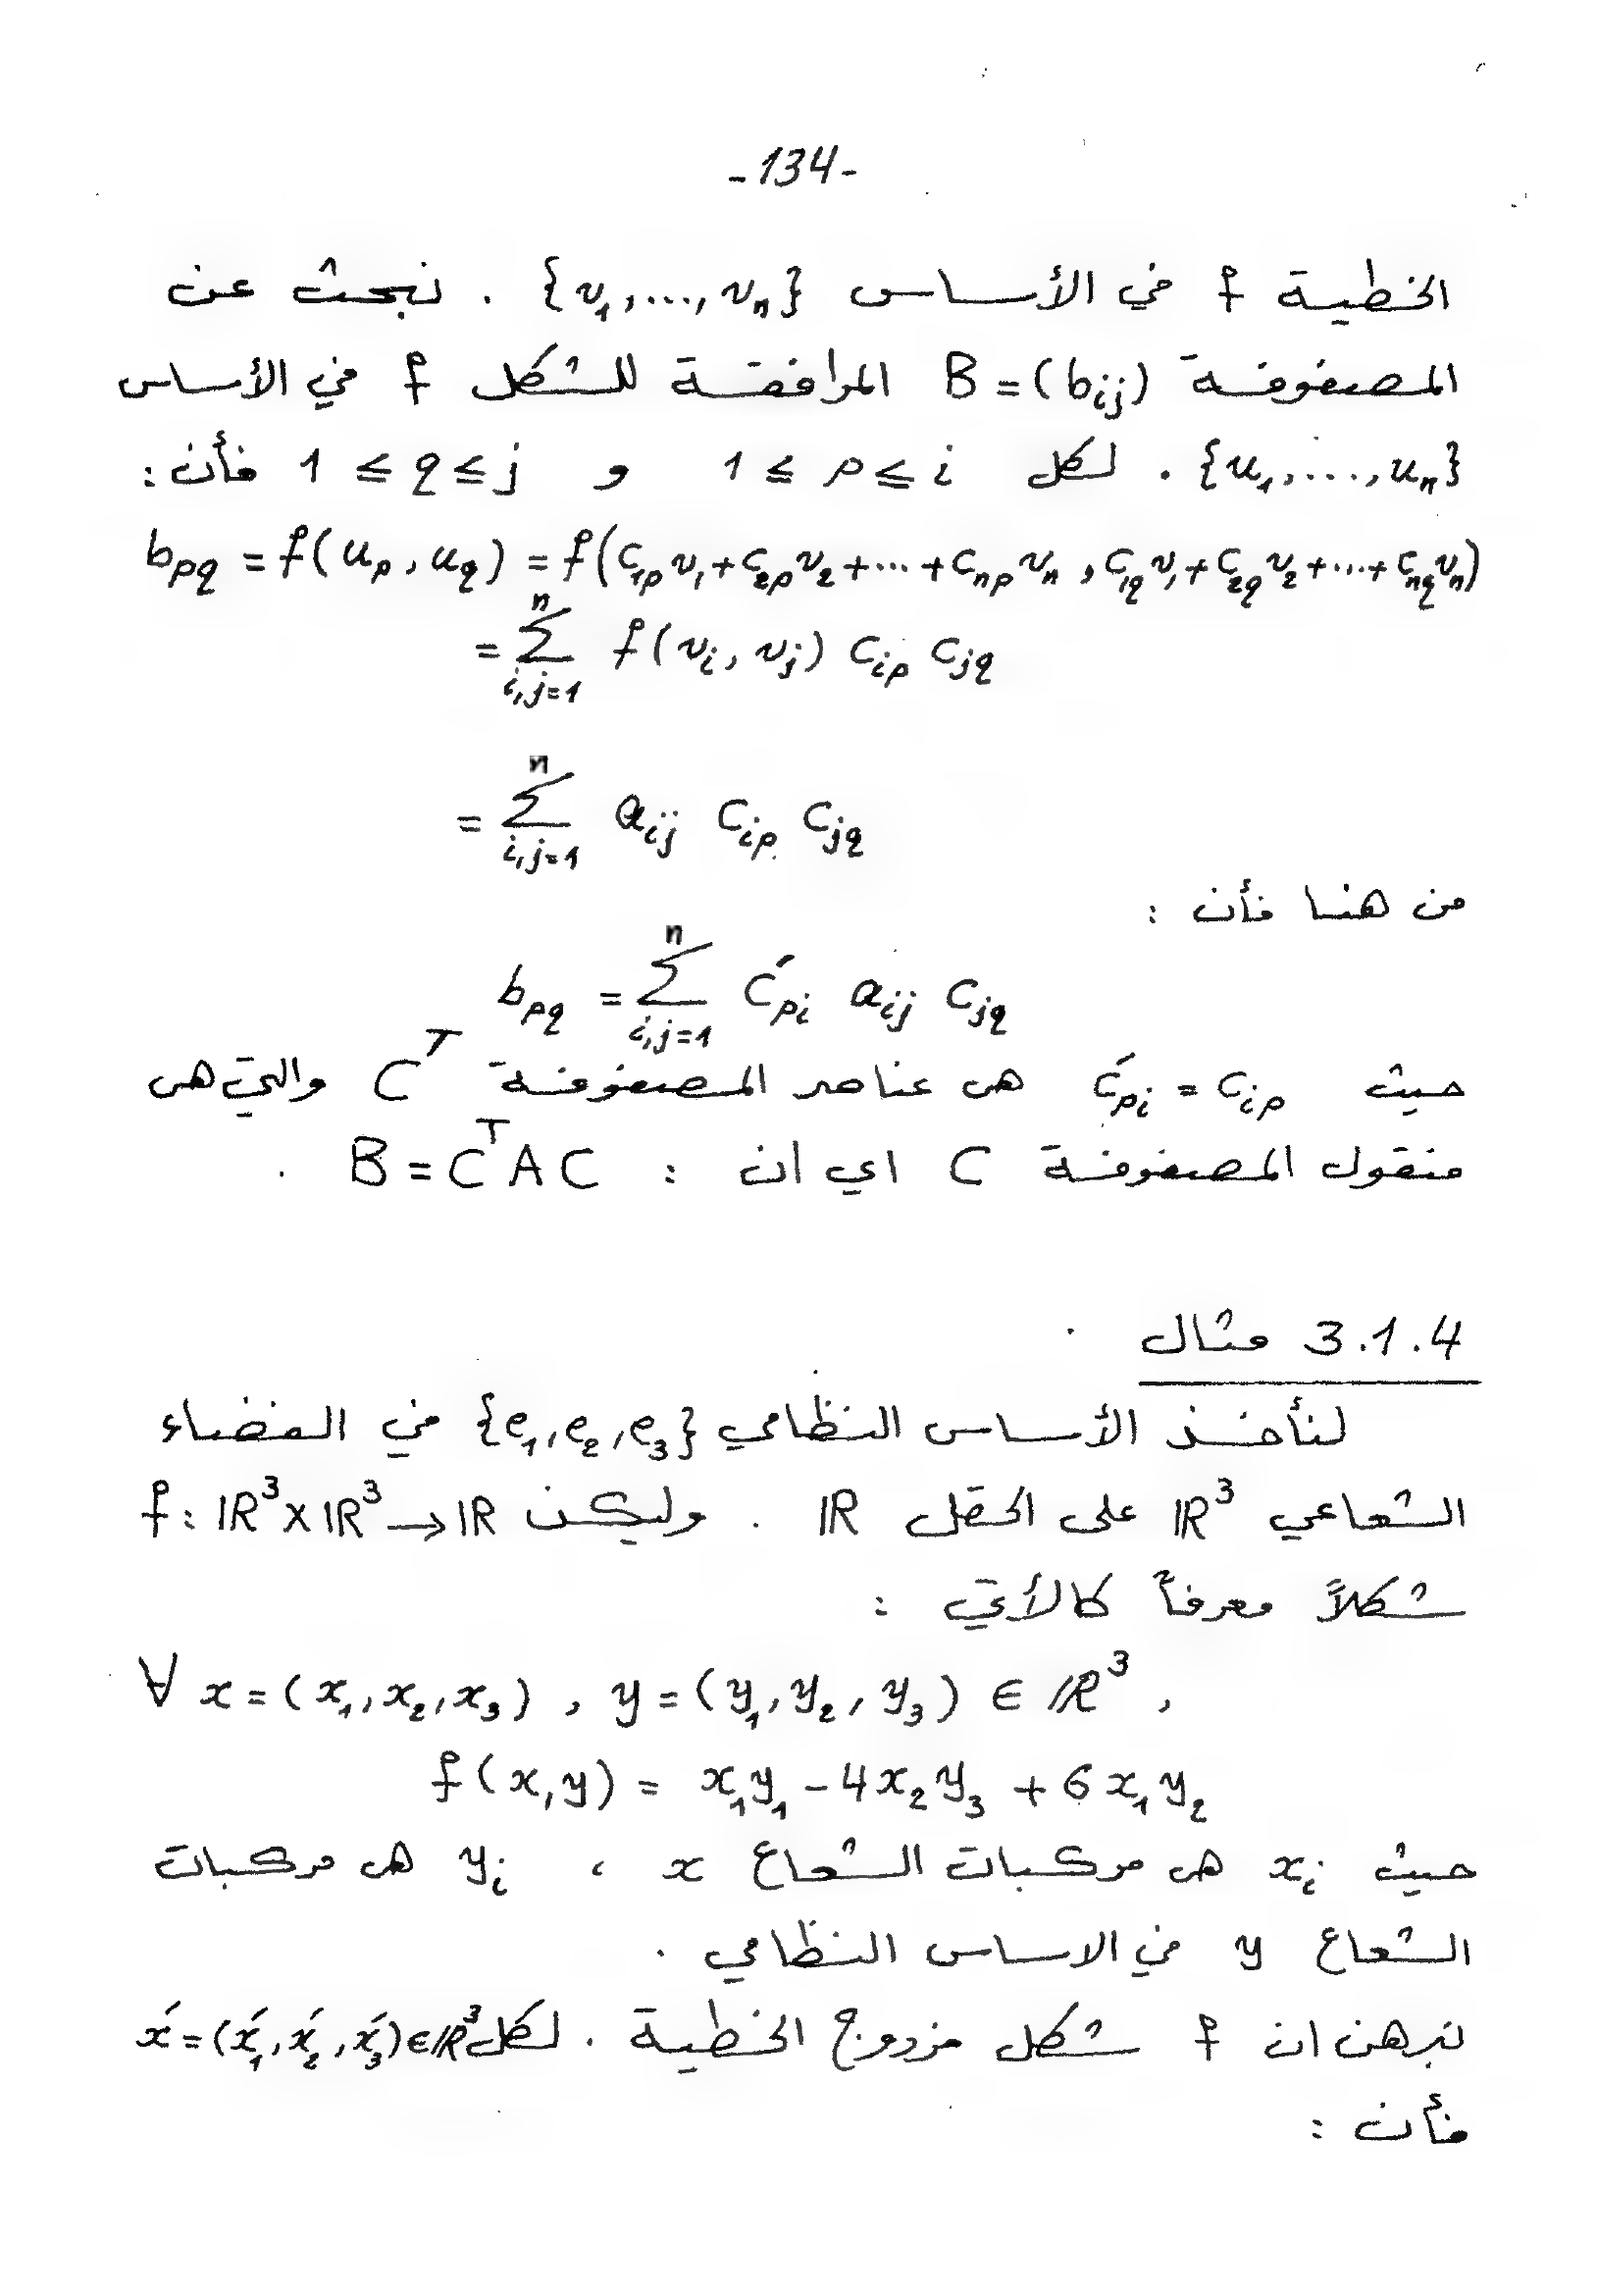 -134-
الخطية f في الأساس {v₁,...,vₙ} . نبحث عن
المصفوفة B = (bᵢⱼ) المرافقة للشكل f في الأساس
{u₁,...,uₙ} . لكل 1 ≤ p ≤ i و 1 ≤ q ≤ j فأن :
b_{pq} = f(u_p, u_q) = f(c_{1p} v₁ + c_{2p} v₂ + ... + c_{np} vₙ , c_{1q} v₁ + c_{2q} v₂ + ... + c_{nq} vₙ)
= \sum_{i,j=1}^{n} f(v_i, v_j) c_{ip} c_{jq}
= \sum_{i,j=1}^{n} a_{ij} c_{ip} c_{jq}
من هنا فأن :
b_{pq} = \sum_{i,j=1}^{n} c'_{pi} a_{ij} c_{jq}
حيث c'_{pi} = c_{ip} هى عناصر المصفوفة C^T والتي هى
منقول المصفوفة C اي ان : B = C^T A C .
3.1.4 مثال
لنأخذ الأساس النظامي {e₁,e₂,e₃} في الفضاء
الشعاعي ℝ³ على الحقل ℝ . وليكن f : ℝ³ × ℝ³ → ℝ
شكلاً معرفاً كالأتي :
∀ x = (x₁,x₂,x₃) , y = (y₁,y₂,y₃) ∈ ℝ³ ,
f(x,y) = x₁y₁ - 4x₂y₃ + 6x₁y₂
حيث xᵢ هى مركبات الشعاع x ، yᵢ هى مركبات
الشعاع y في الاساس النظامي .
نبرهن ان f شكل مزدوج الخطية . لكل x' = (x'₁,x'₂,x'₃) ∈ ℝ³
فأن :